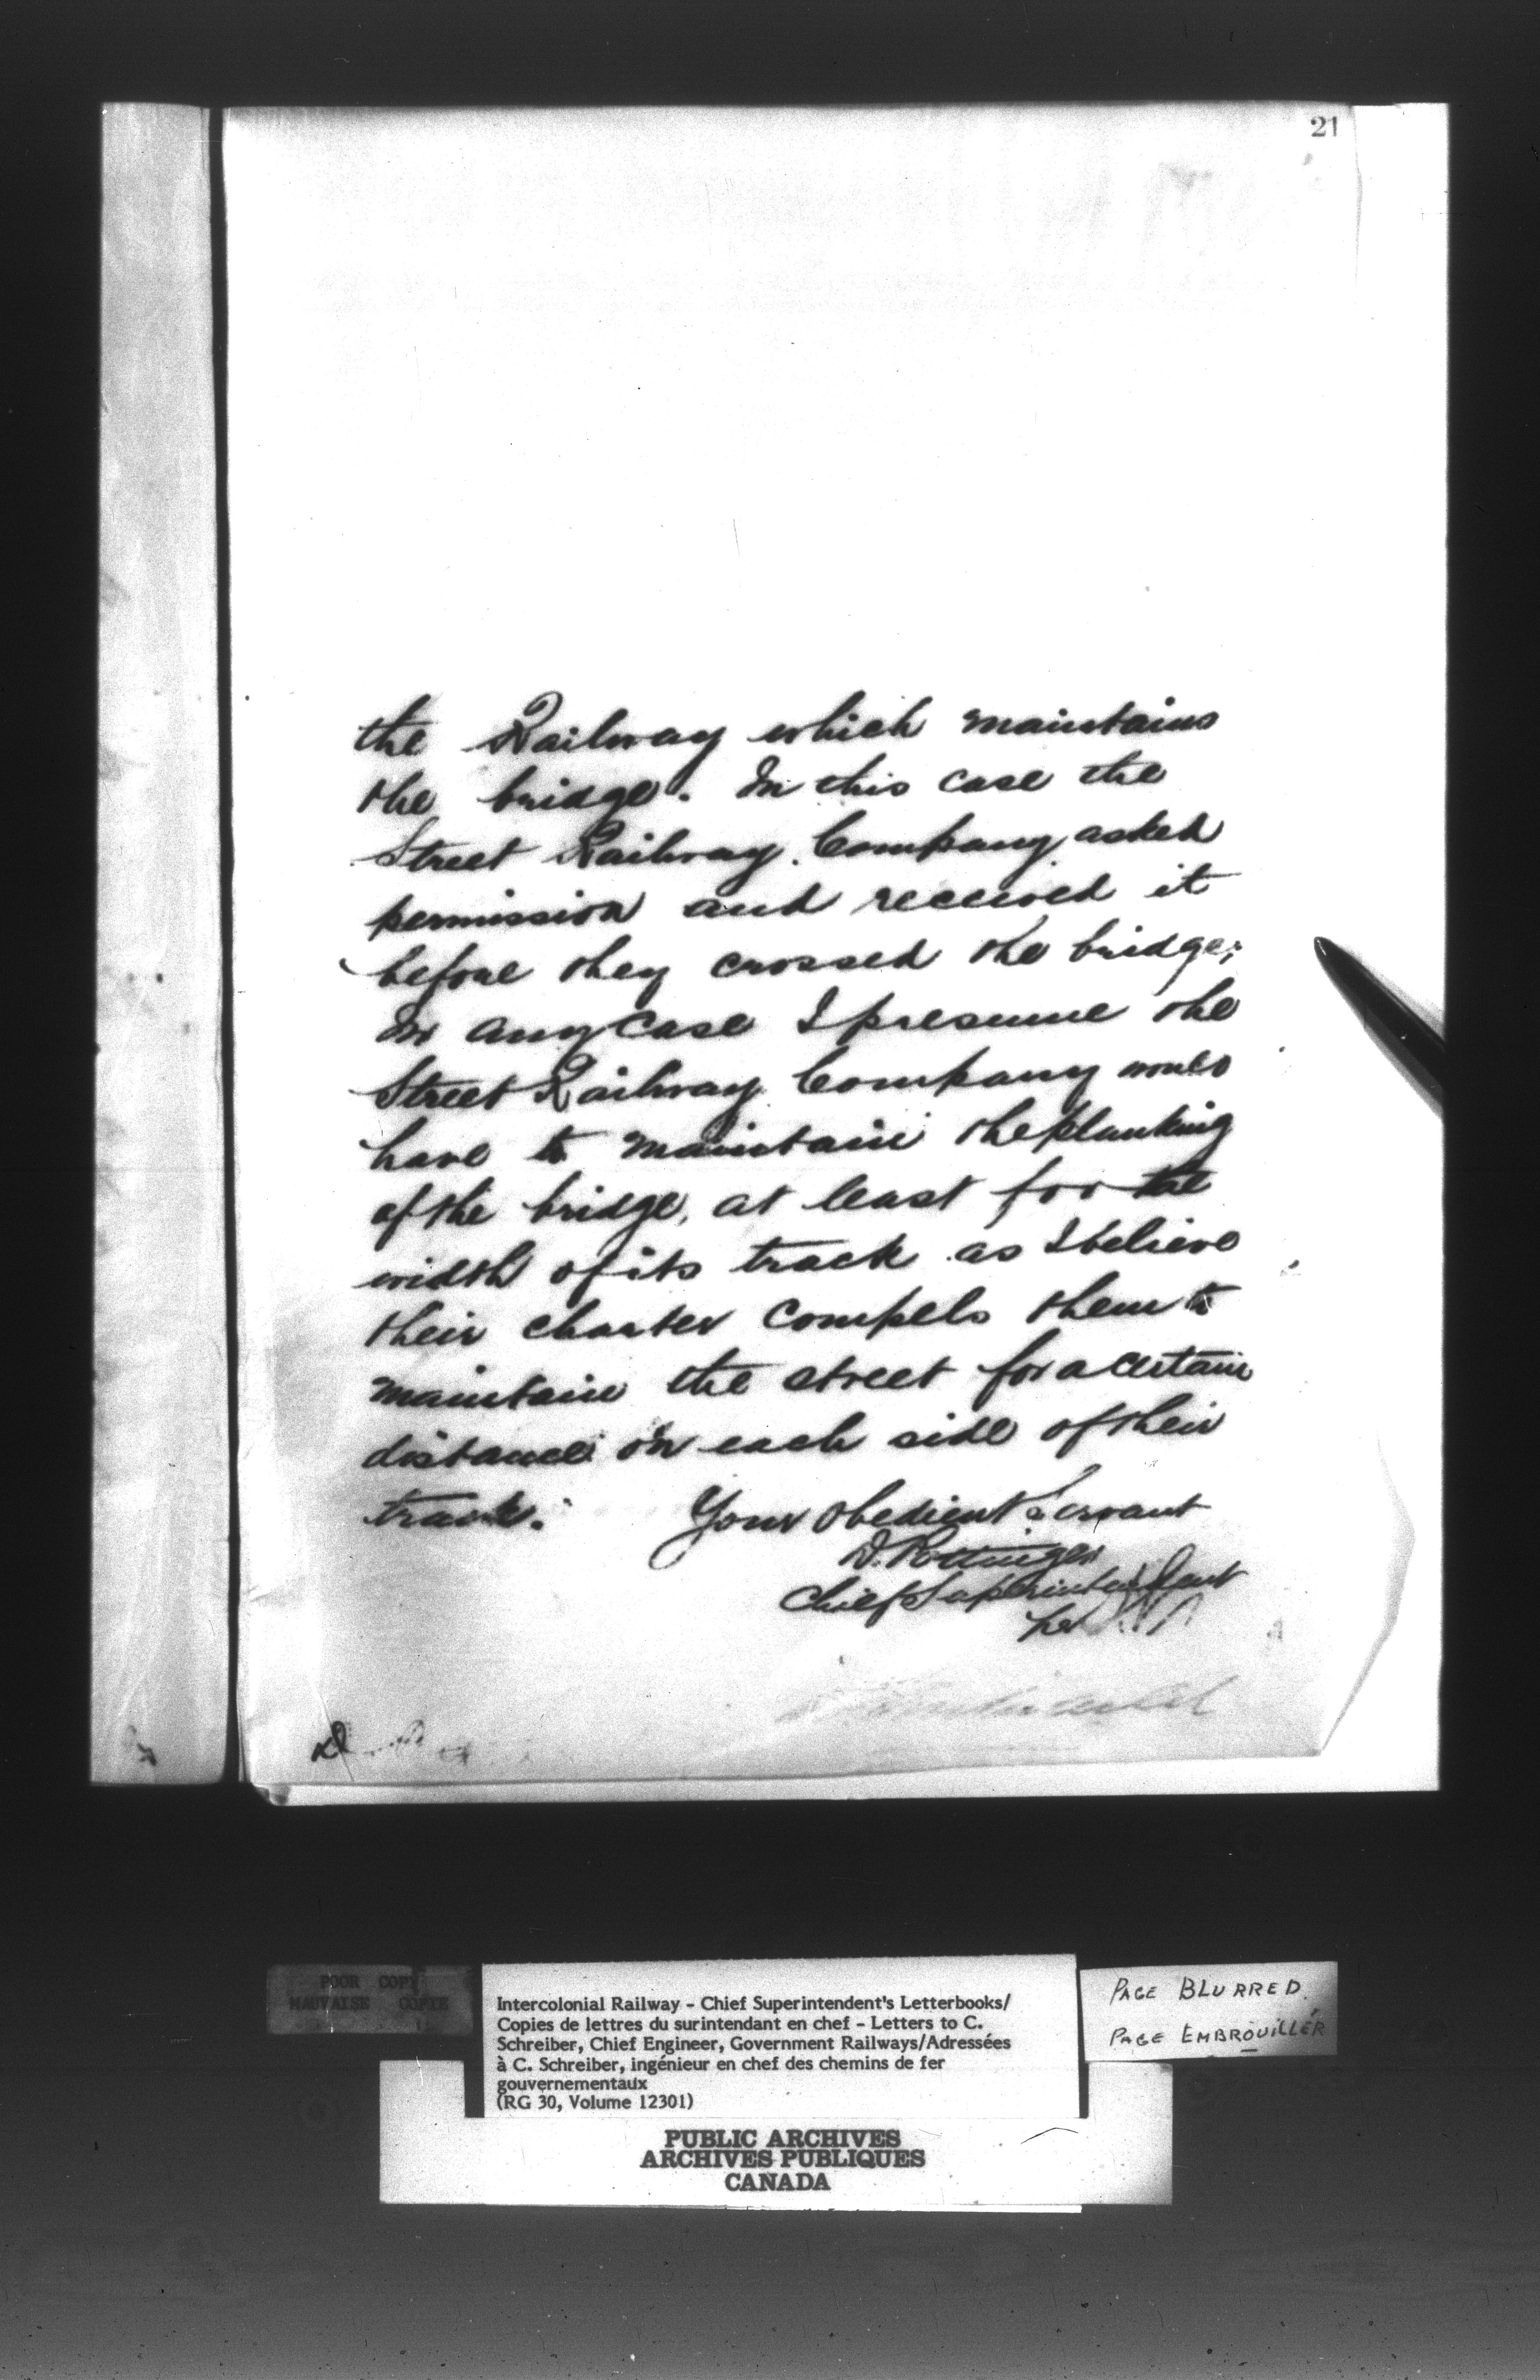 21
the Railway which maintains
the bridge. In this case the
Street Railway Company asked
permission and received it
before they crossed the bridge;
In any case I presume the
Street Railway Company would
have to maintain the planking
of the bridge, at least for the
width of its track as I believe
their charter compels them to
maintain the street for a certain
distance on each side of their
track. Your obedient Servant
D. Pottinger
Chief Superintendent
POOR COPY
MAUVAISE COPIE
Intercolonial Railway - Chief Superintendent's Letterbooks/
Copies de lettres du surintendant en chef - Letters to C.
Schreiber, Chief Engineer, Government Railways/Adressées
à C. Schreiber, ingénieur en chef des chemins de fer
gouvernementaux
(RG 30, Volume 12301)
PAGE BLURRED.
PAGE EMBROUILLÉR
PUBLIC ARCHIVES
ARCHIVES PUBLIQUES
CANADA